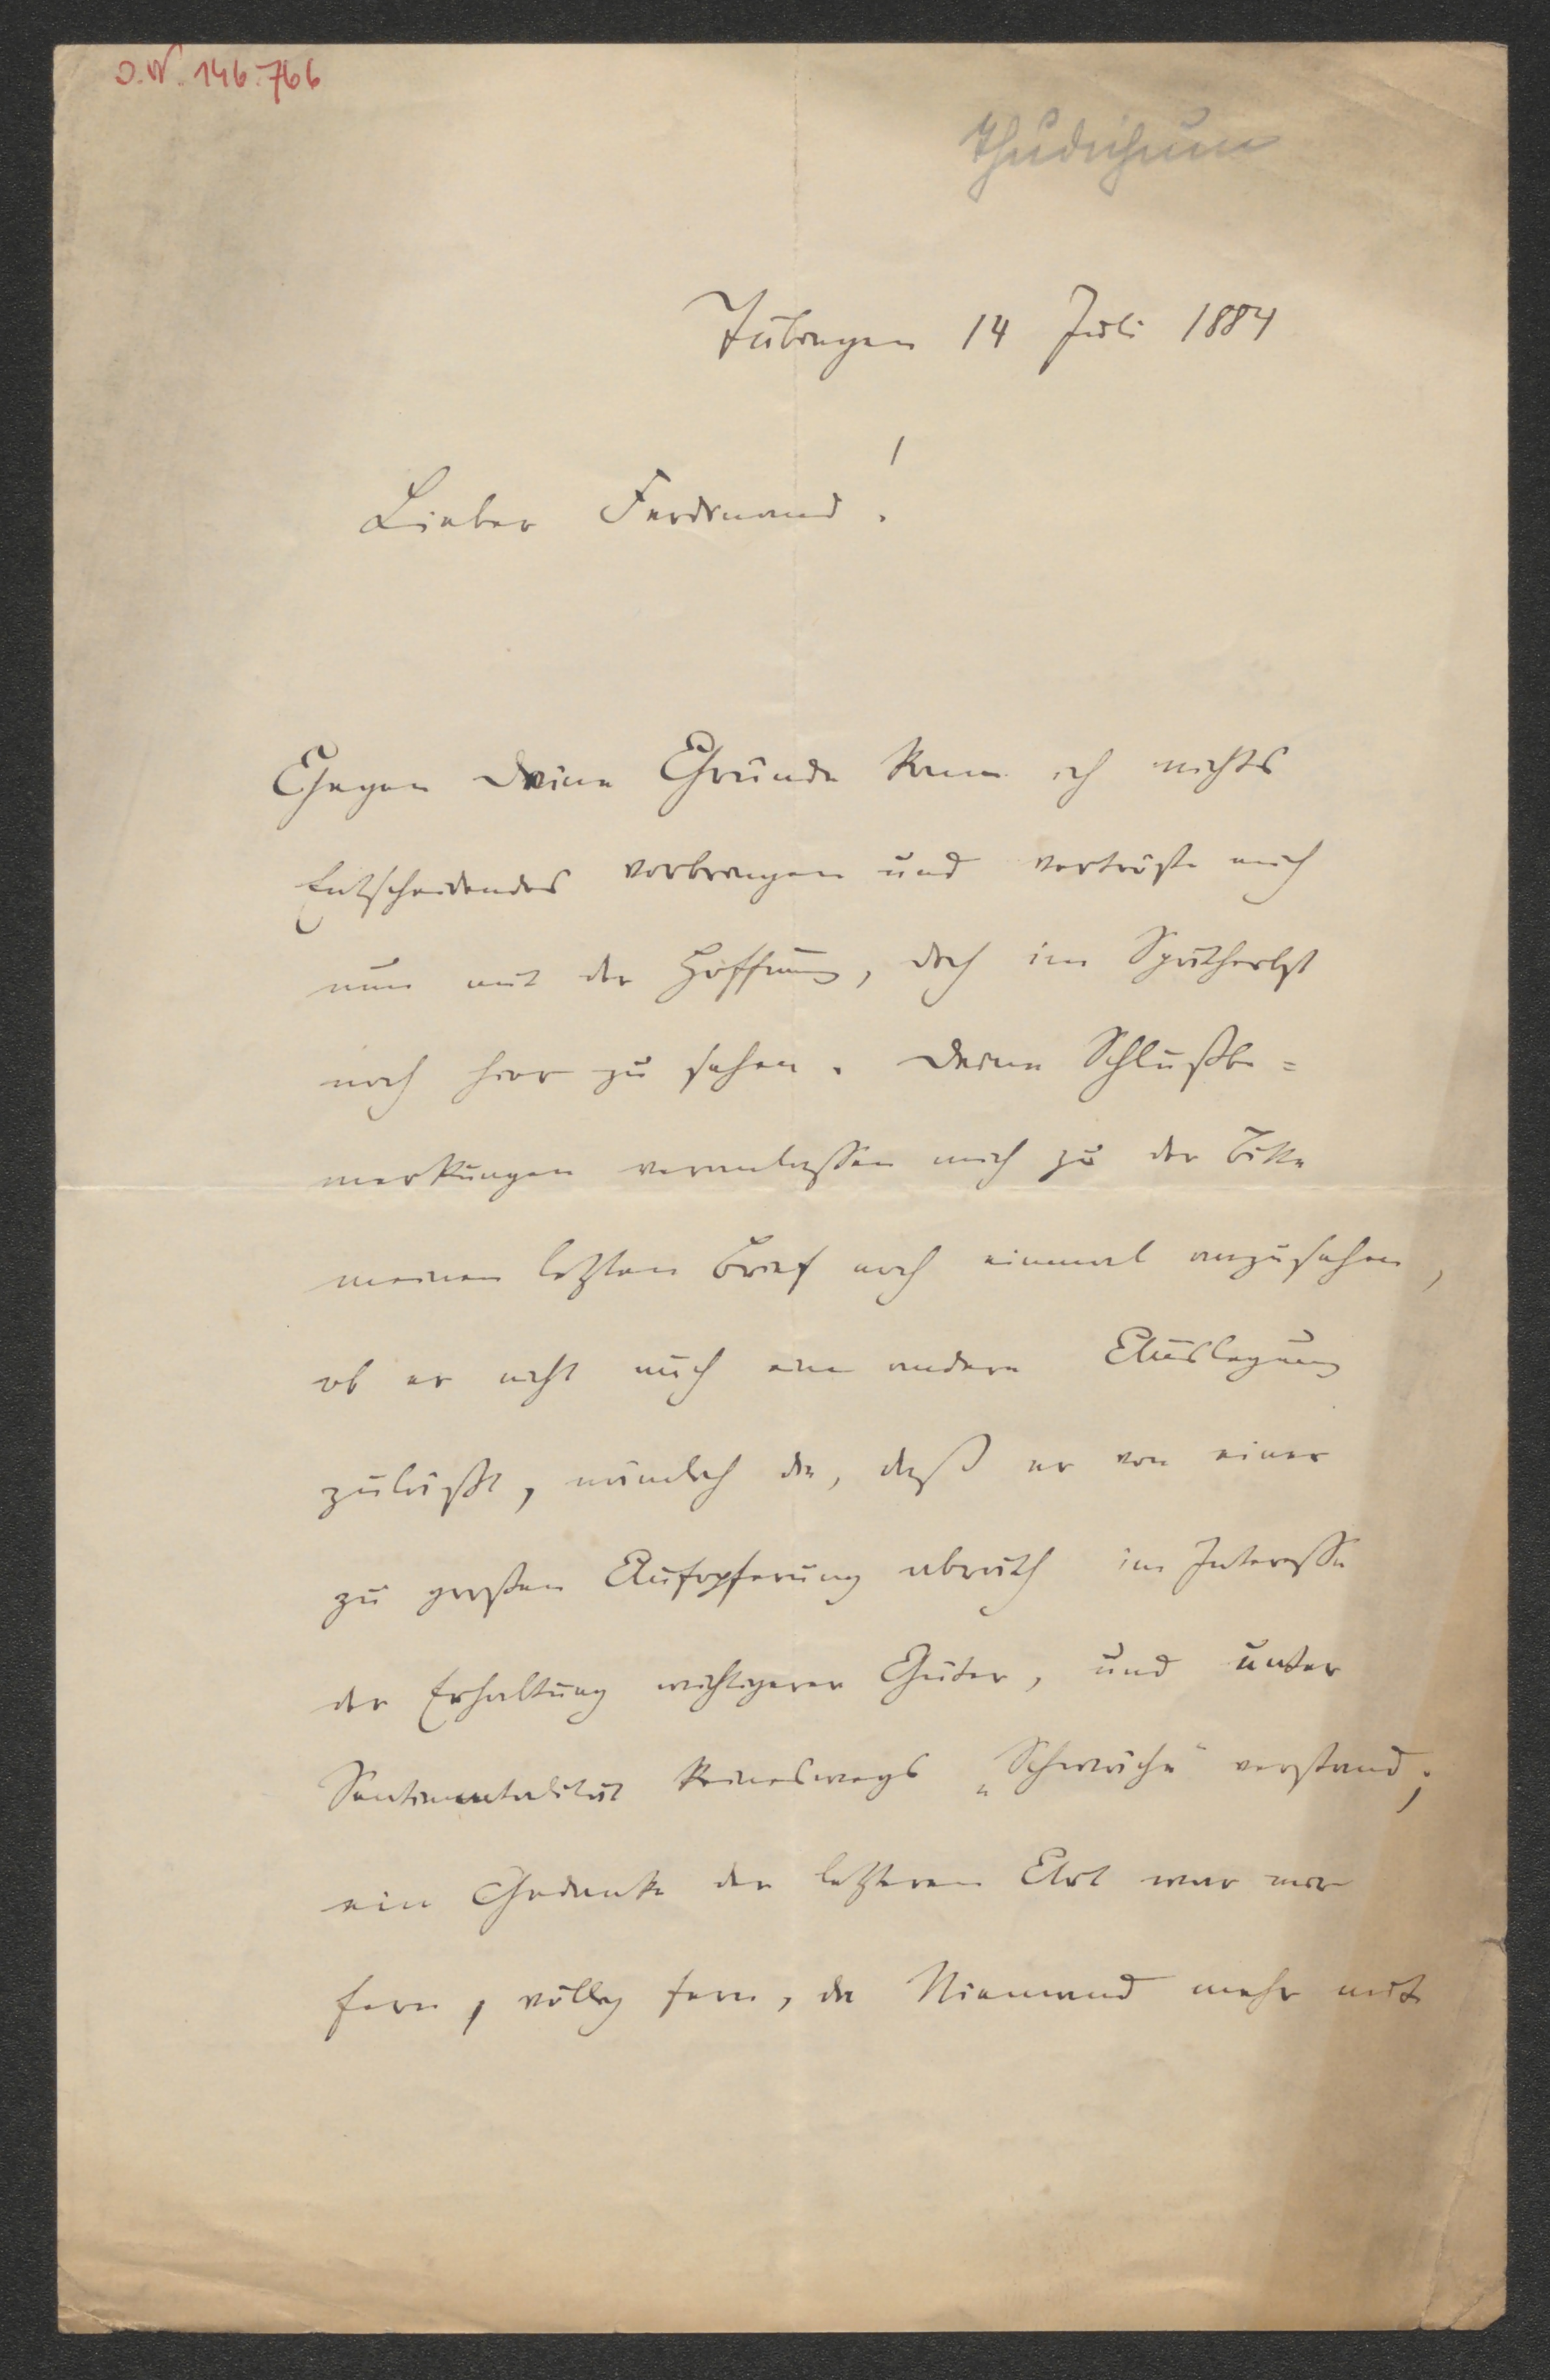 J.N. 146.766
Thudichum
Tübingen 14 Juli 1884
Lieber Ferdinand!
Gegen Deine Gründe kann ich nichts
Entscheidendes vorbringen und vertröste mich
nun mit der Hoffnung, doch im Spätherbst
noch hier zu sehen. Deine Schlußbe=
merkungen veranlassen mich zu der Bitte
meinen letzten Brief noch einmal anzusehen,
ob er nicht auch eine andere Auslegung
zuläßt, nämlich die, daß er von einer
zu großen Aufopferung abräth im Interesse
der Erhaltung wichtigerer Güter, und unter
Sentimentalität keineswegs „Schwäche" verstand;
ein Gedanke der letzteren Art war mir
fern, völlig fern, da Niemand mehr mit